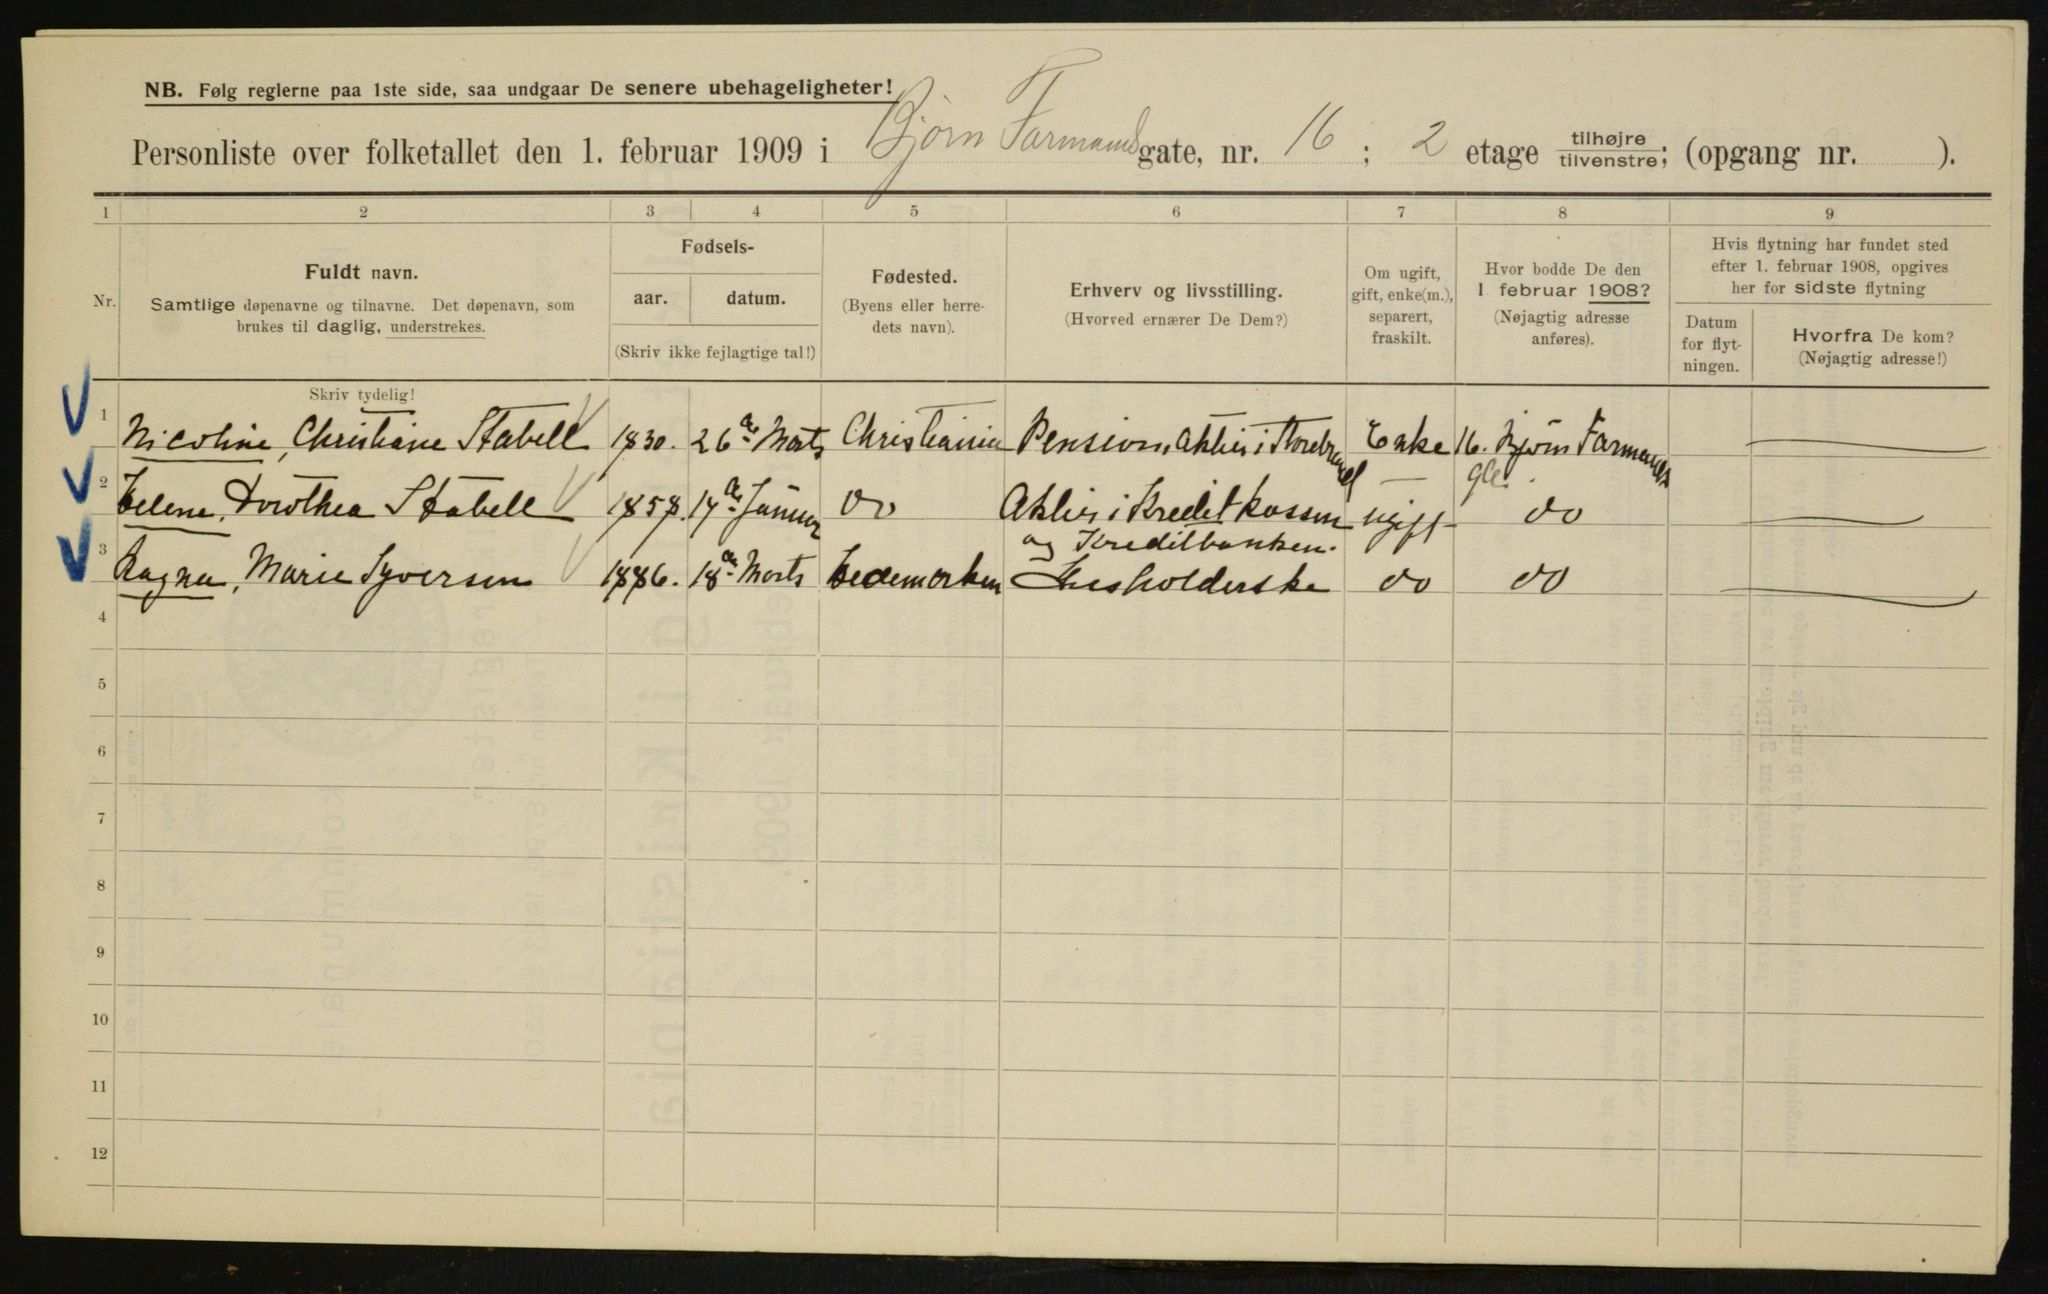 NB. Følg reglerne paa 1ste side, saa undgaar De senere ubehageligheter!
Personliste over folketallet den 1. februar 1909 i Bjørn Farmands gate, nr. 16 ; 2 etage tilhøjre/tilvenstre; (opgang nr. ).
1 2 3 4 5 6 7 8 9
Nr.
Fuldt navn.
Samtlige døpenavne og tilnavne. Det døpenavn, som
brukes til daglig, understrekes.
Fødsels-
aar. datum.
(Skriv ikke fejlagtige tal!)
Fødested.
(Byens eller herre-
dets navn).
Erhverv og livsstilling.
(Hvorved ernærer De Dem?)
Om ugift,
gift, enke(m.),
separert,
fraskilt.
Hvor bodde De den
1 februar 1908?
(Nøjagtig adresse
anføres).
Hvis flytning har fundet sted
efter 1. februar 1908, opgives
her for sidste flytning
Datum
for flyt-
ningen.
Hvorfra De kom?
(Nøjagtig adresse!)
Skriv tydelig!
1 Nicoline, Christiane Stabell 1830. 26de Marts Christiania Pension, Aktier i Storebrand Enke 16. Bjørn Farmands
gt.
2 Helene, Dorothea Stabell 1858. 14de Januar do Aktier i Kreditkassen ugift do
og Kreditbanken.
3 Ragna, Marie Syversen 1886. 18de Marts Hedemarken Husholderske do do
4
5
6
7
8
9
10
11
12